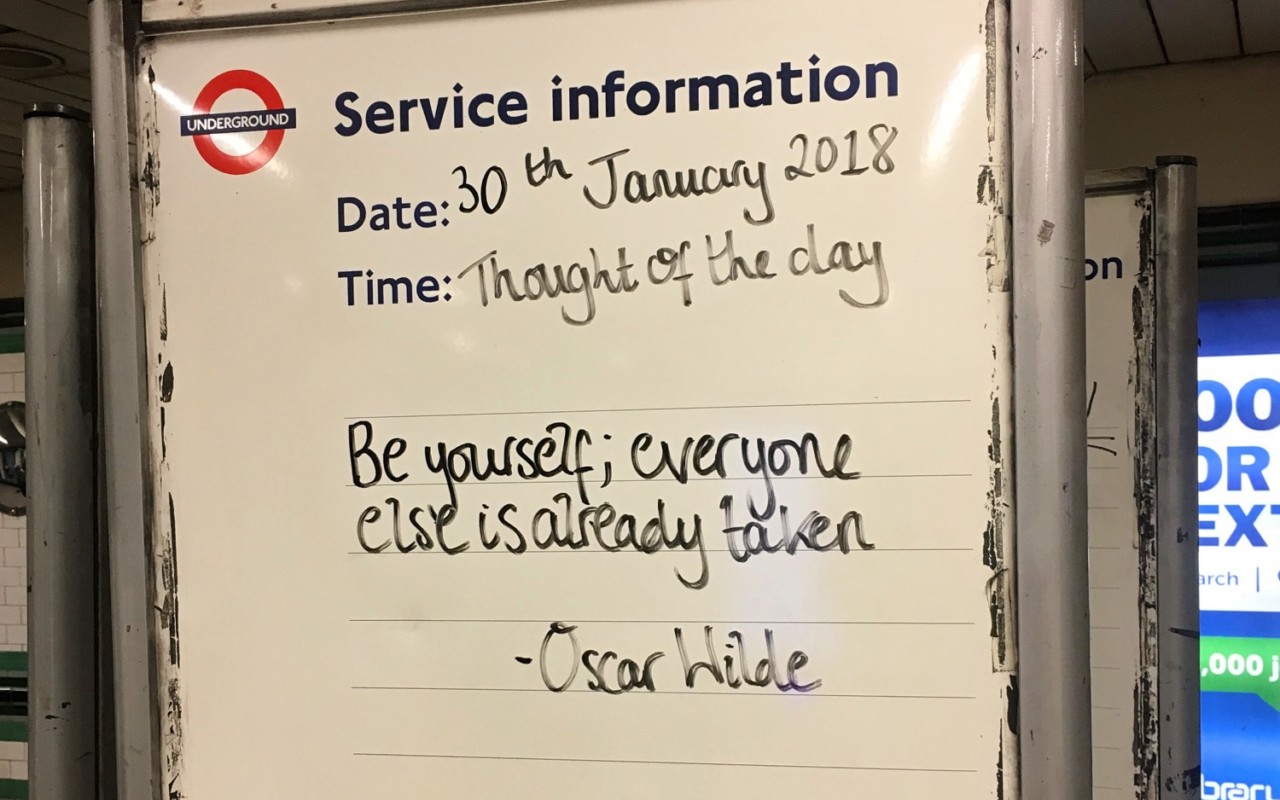 UNDERGROUND
Service information
Date: 30th January 2018
Time: Thought of the day
Be yourself; everyone
else is already taken
-Oscar Wilde
on
OR
arch |
,000 j